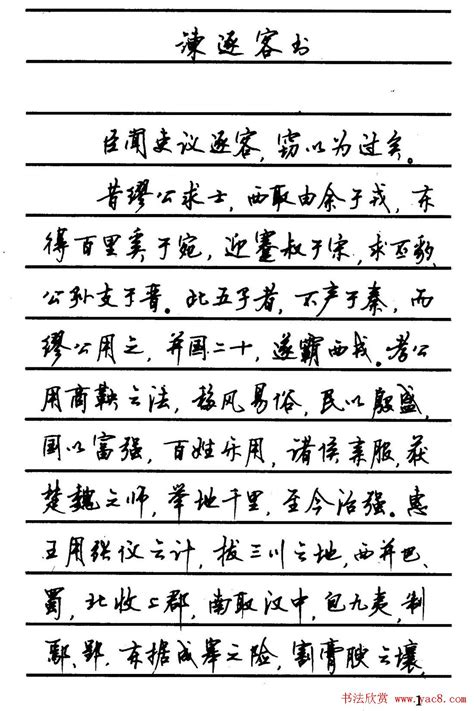 谏逐客书
臣闻吏议逐客，窃以为过矣。
昔缪公求士，西取由余于戎，东
得百里奚于宛，迎蹇叔于宋，求丕豹、
公孙支于晋。此五子者，不产于秦，而
缪公用之，并国二十，遂霸西戎。孝公
用商鞅之法，移风易俗，民以殷盛，
国以富强，百姓乐用，诸侯亲服，获
楚魏之师，举地千里，至今治强。惠
王用张仪之计，拔三川之地，西并巴、
蜀，北收上郡，南取汉中，包九夷，制
鄢、郢，东据成皋之险，割膏腴之壤，
书法欣赏 www.yac8.com
1